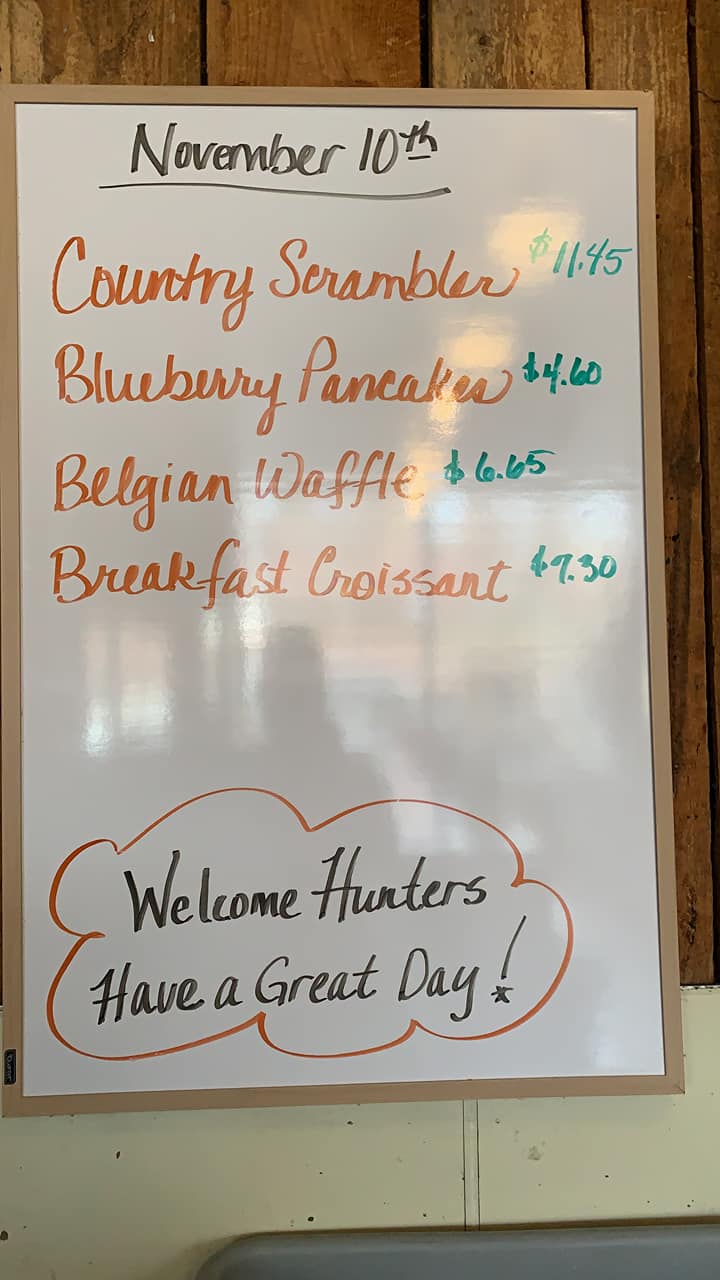 November 10th
Country Scrambler $11.45
Blueberry Pancakes $4.60
Belgian Waffle $6.65
Breakfast Croissant $9.30
Welcome Hunters
Have a Great Day!